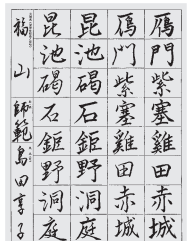 鴈門紫塞雞田赤城
鴈門紫塞雞田赤城
昆池碣石鉅野洞庭
昆池碣石鉅野洞庭
福山 師範 島田享子